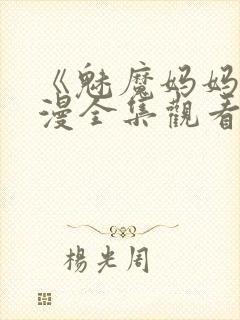 《魅魔妈妈
漫全集觀看
楊光周